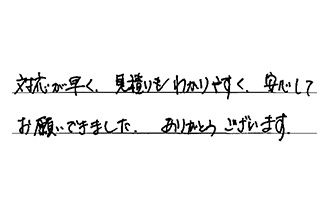 対応が早く、見積りもわかりやすく、安心して
お願いできました。ありがとうございます。